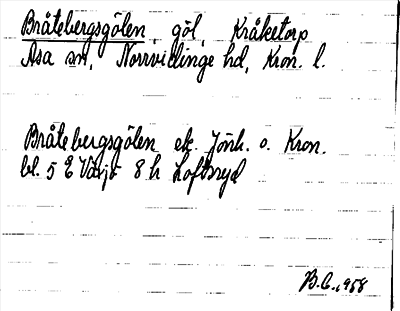 Bråtebergsgölen, göl, Kråketorp
Asa sn, Norrvidinge hd, Kron. l.
Bråtebergsgölen ek. Jönk. o. Kron.
bl. 5 E Växjö 8 h Loftsryd
B.C., 1958